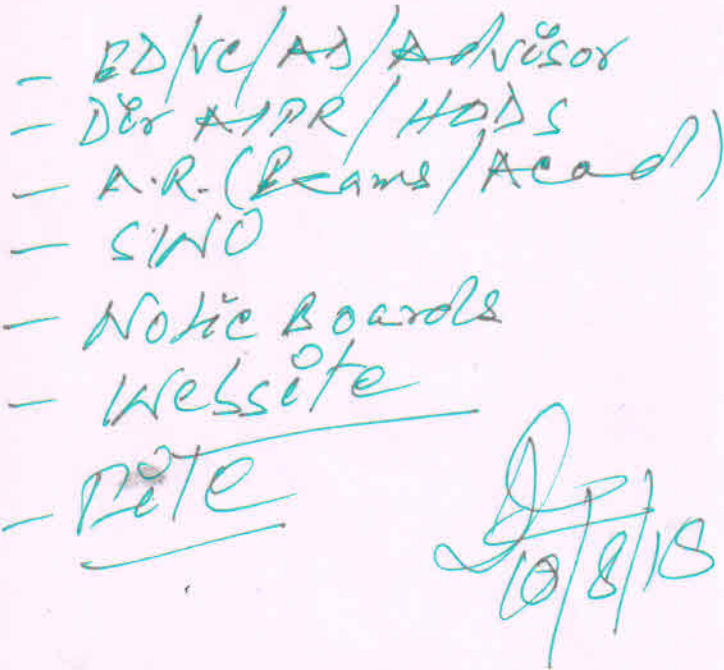 - ED/VC/AD/Advisor
- Dir AIPR/HODS
- A.R.(Exams/Acad)
- SWO
- Notic Boards
- Website
- File
10/8/18